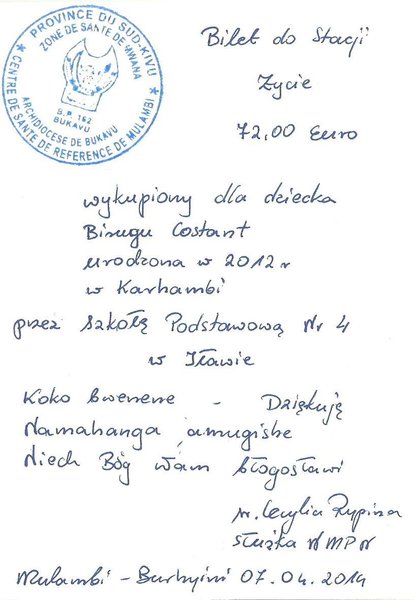 PROVINCE DU SUD-KIVU
ZONE DE SANTE DE MWANA
CENTRE DE SANTE DE REFERENCE DE MULAMBI
B.P. 162
BUKAVU
ARCHIDIOCESE DE BUKAVU
Bilet do Stacji
Życie
72,00 Euro
wykupiony dla dziecka
Birugu Costant
urodzona w 2012 r
w Karhambi
przez Szkołę Podstawową Nr 4
w Iławie
Koko bwenene - Dziękuję
Namahanga amugishe
Niech Bóg Wam błogosławi
s. Cecylia Rypina
służka NMPN
Mulambi - Burhyini 07.04.2014